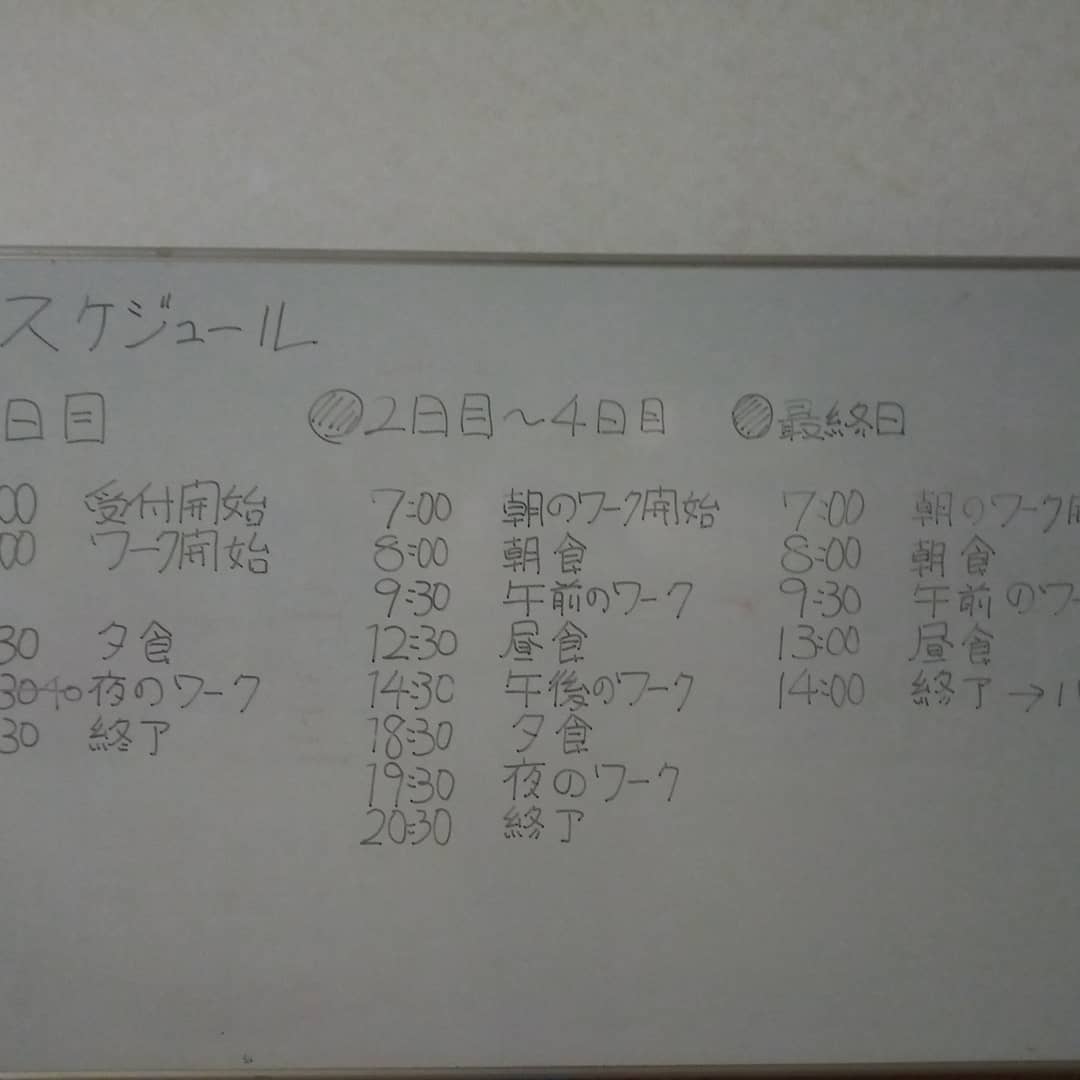 スケジュール
日目
00 受付開始
00 ワーク開始
30 夕食
30 40 夜のワーク
30 終了
2日目〜4日目
7:00 朝のワーク開始
8:00 朝食
9:30 午前のワーク
12:30 昼食
14:30 午後のワーク
18:30 夕食
19:30 夜のワーク
20:30 終了
最終日
7:00 朝のワーク開
8:00 朝食
9:30 午前のワー
13:00 昼食
14:00 終了→